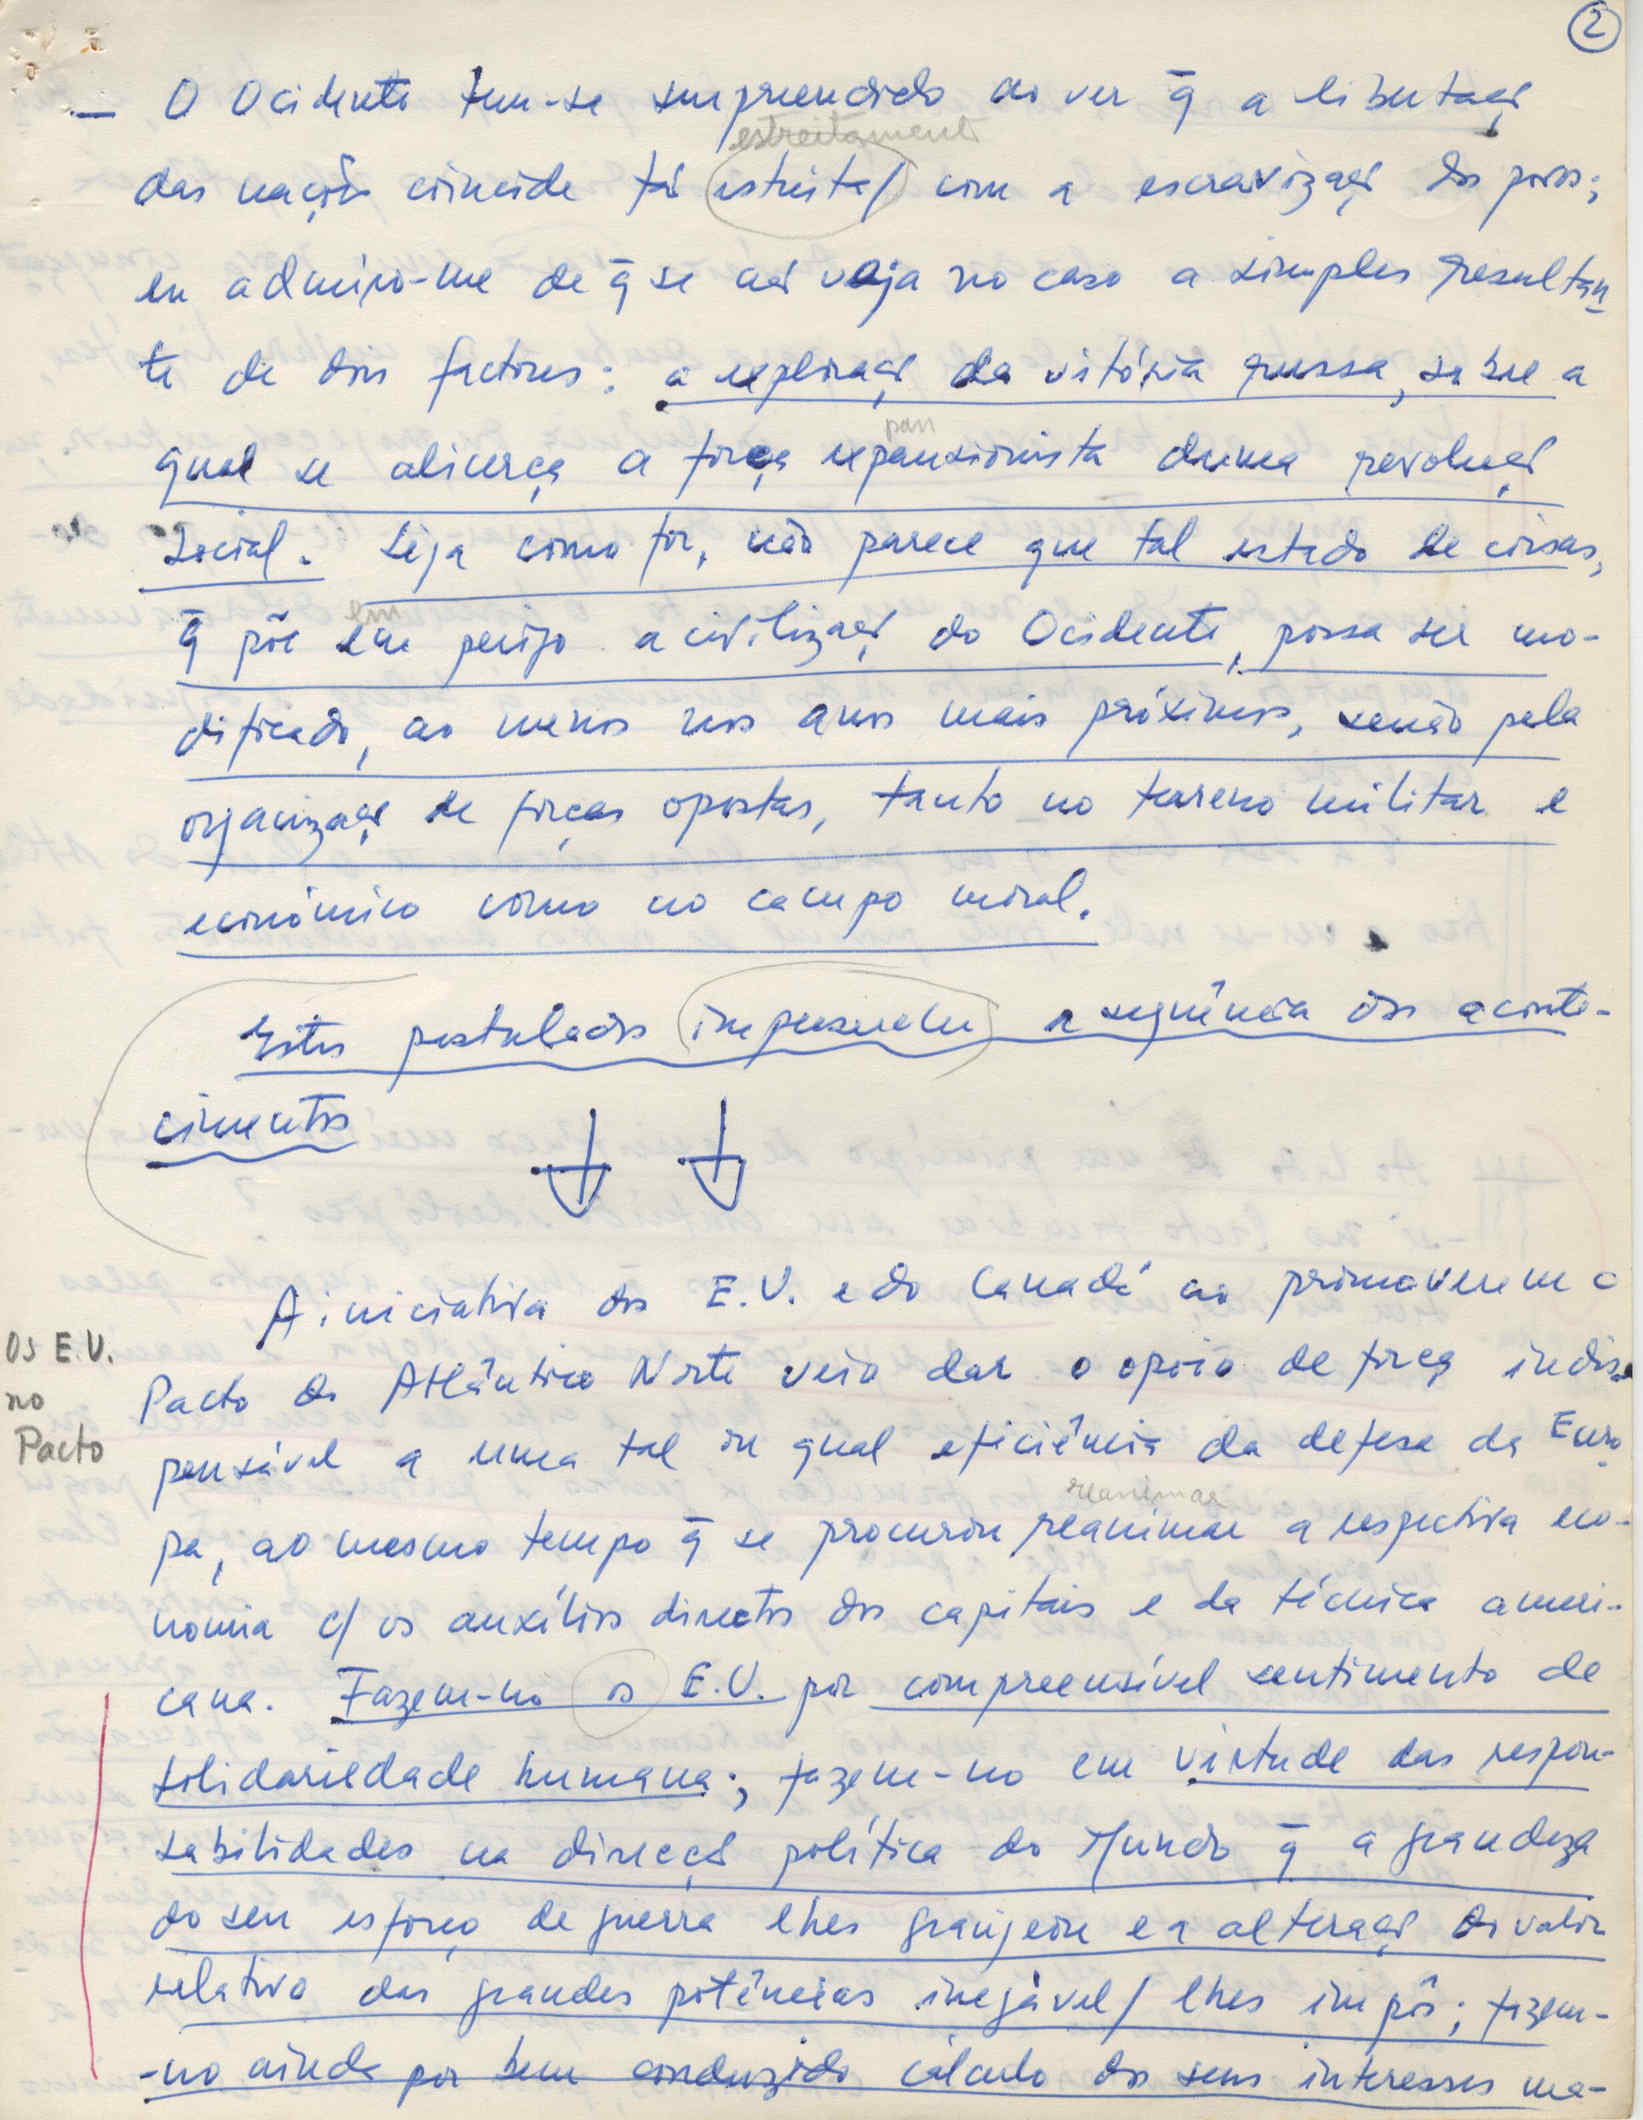 2
— O Ocidente tem-se surpreendido ao ver q̄ a libertaçã
estreitament
das nações coincide tã estreita/ com a escravizaçã dos povos;
eu admiro-me de q̄ se nã veja no caso a simples resultan
te de dois factores: a exploraçã da vitória russa, sobre a
pan
qual se alicerça a força expansionista duma revoluçã
social. Seja como for, não parece que tal estado de coisas,
em
q̄ põe em perigo a civilizaçã do Ocidente, possa ser mo-
dificado, ao menos nos anos mais próximos, senão pela
organizaçã de forças opostas, tanto no terreno militar e
económico como no campo moral.
Estes postulados impuseram a sequência dos aconte-
cimentos
A iniciativa dos E.U. e do Canadá ao promoverem o
OS E.U.
no
Pacto
Pacto do Atlântico Norte veio dar o apoio de força indis
pensável a uma tal ou qual eficiência da defesa da Euro
reanimar
pa, ao mesmo tempo q̄ se procurou reanimar a respectiva eco-
nomia c/ os auxílios directos dos capitais e da técnica ameri-
cana. Fazem-no os E.U. por compreensível sentimento de
solidariedade humana; fazem-no em virtude das respon-
sabilidades na direcçã política do Mundo q̄ a grandeza
do seu esforço de guerra lhes granjeou e a alteraçã do valor
relativo das grandes potências inegável/ lhes impôs; fazem-
-no ainda por bem conduzido cálculo dos seus interesses ma-